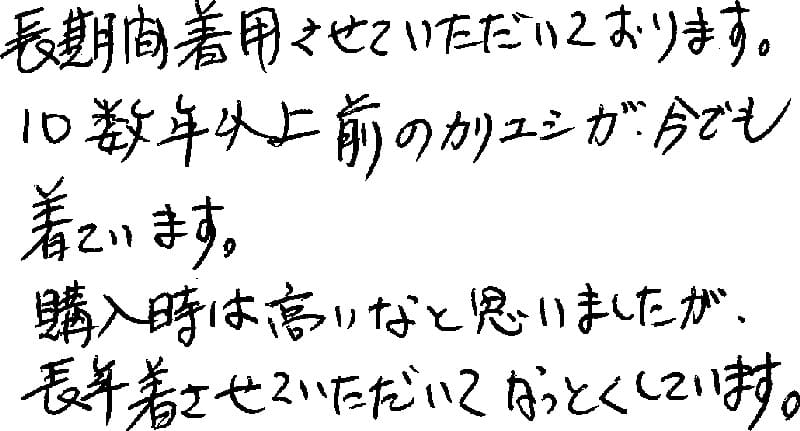 長期間着用させていただいております。
10数年以上前のカリエシが、今でも
着ています。
購入時は高いなと思いましたが、
長年着させていただいてなっとくしています。